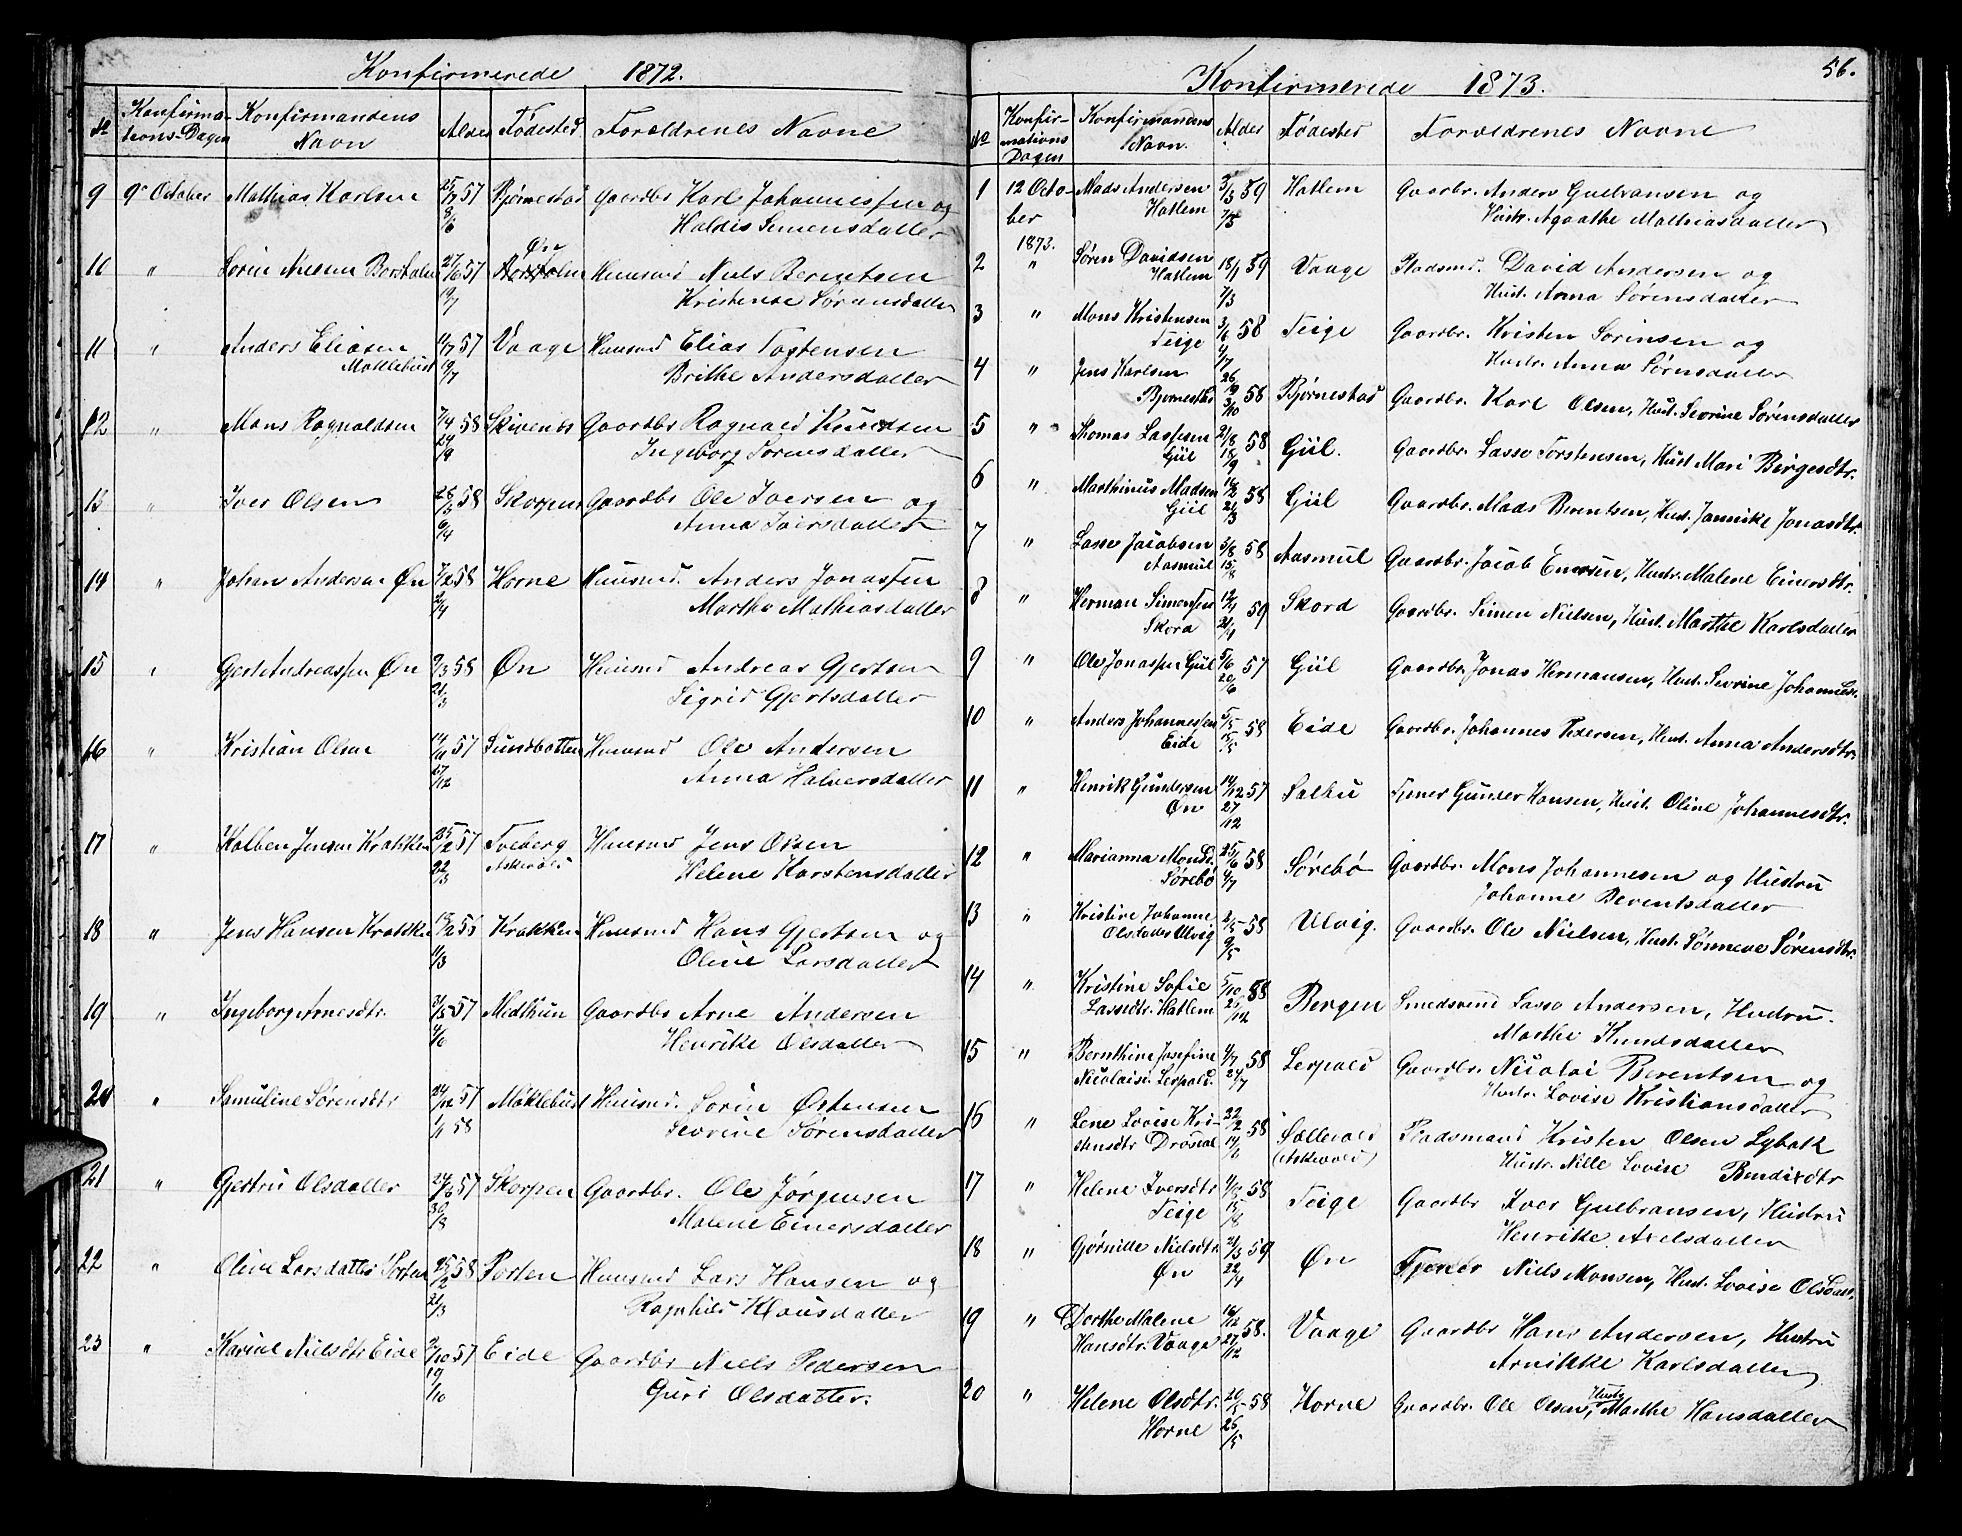 Konfirmerede 1872.
No Konfirma-tions-Dagen Konfirmandens Navn Alder Fødested Forældrenes Navne
9 9de October Mathias Karlsen 25/7 57 Bjørnestad Gaardbr Karl Johannessen og
8/6 Haldis Simensdatter
10 " Sørin Nielsen Borholm 27/6 57 Øn Huusmd Niels Berentsen
19/7 Kristense Sørensdatter
11 " Anders Eliasen 57 Vaage Huusmd Elias Tostensen
Moklebust 19/7 Brithe Andersdatter
12 " Mons Ragnaldsen 7/4 58 Skivenes Gaardbr Ragnald Knudsen
24/9 Ingeborg Sørensdatter
13 " Iver Olsen 26/3 58 Skorpen Gaardbr Ole Iversen og
6/4 Anna Iversdatter
14 " Johan Andersen Øn 7/2 58 Horne Huusmd. Anders Jonassen
2/4 Marthe Mathiasdatter
15 " Gjert Andreassen Øn 9/3 58 Øn Huusmd Andreas Gjertsen
21/3 Sigrid Gjertsdatter
16 " Kristian Olsen 57 Sundbotten Huusmd Ole Andersen
27/12 Anna Halversdatter
17 " Kolben Jensen Krakken 25/2 57 Tveberg Huusmd Jens Olsen
22/3 Askevold Helene Karstensdatter
18 " Jens Hansen Krakken 56 Krakken Huusmd Hans Gjertsen og
11/3 Oline Larsdatter
19 " Ingeborg Arnesdtr. 31/5 57 Midthun Gaardbr Arne Andersen
Henrikke Olsdatter
20 " Samuline Sørensdtr 24/12 57 Moklebust Huusmd. Sørin Østensen
1/1 58 Sevrine Sørensdatter
21 " Gjertru Olsdatter 24/6 57 Skorpen Gaardbr. Ole Jørgensen
30/8 Malene Einersdatter
22 " Oline Larsdatter Porten 25/2 58 Porten Huusmd Lars Hansen og
21/3 Ragnhild Klausdatter
23 " Karine Nielsdtr Eide 2/10 57 Eide Gaardbr Niels Pedersen
19/10 Guri Olsdatter.
Konfirmerede 1873. 56.
No Konfir-mations Dagen Konfirmandens Navn. Alder Fødested Forældrenes Navne
1 12 Octo- Mads Andersen 3/3 59 Hatlem Gaardbr. Anders Gulbransen og
ber Hatlem 7/5 Hustr. Agaathe Mathiasdatter
1873.
2 " Søren Davidsen 18/1 59 Vaage Pladsmd. David Andersen og
Hatlem 7/3 Hust. Anna Sørensdatter
3 " Mons Kristensen 58 Teige Gaardbr. Kristen Sørinsen og
Teige 4/7 Hustr. Anna Sørnsdatter
4 " Jens Karlsen 26/9 58 Bjørnestad Gaardbr. Karl Olsen, Hust. Sevrine Sørensdatter
Bjørnestad 3/10
5 " Thomas Lassesen 21/8 58 Giil. Gaardbr. Lasse Torstensen, Hust Mari Birgesdtr.
Giil 18/9
6 " Marthinus Madsen 18/2 58 Giil Gaardbr. Mads Berentsen, Hust. Jannike Jonasdtr
Giil 21/3
7 " Lasse Jacobsen 5/8 58 Aasmul Gaardbr. Jacob Einersen, Hustr. Malene Einersdtr.
Aasmul 15/8
8 " Herman Simensen 12/4 59 Skord Gaardbr. Simen Nielsen, Hust. Marthe Karlsdatter
Skora 21/4
9 " Ole Jonassen Giil 5/6 57 Giil Gaardbr. Jonas Hermansen, Hust. Sevrine Johannesd.
20/6
10 " Anders Johannessen 5/5 58 Eide Gaardbr. Johannes Pedersen, Hust. Anna Andersdtr.
Eide 15/5
11 " Henrik Gundersen 14/12 57 Salbu Tjener Gunder Hansen, Hust. Oline Johannesdtr.
Øn 27/12
12 " Marianna Monsd. 25/6 58 Sørebø Gaardbr. Mons Johannesen og Hustru
Sørebø 4/7 Johanne Berentsdatter
13 " Kristine Johanne 2/5 58 Ulvig. Gaardbr. Ole Nielsen, Hust. Sønneve Sørensdtr.
Olsdatter Ulvig 9/5
14 " Kristine Sofie 5/10 58 Bergen Smedsvend Lasse Andersen, Hustru.
Lassedtr. Hatlem 26/12 Marthe Knudsdatter
15 " Bernthine Josefine 4/7 58 Lerpold Gaardbr. Nicolai Berentsen og
Nicolaisd. Lerpold. 24/7 Hustr. Lovise Kristiansdatter
16 " Lene Lovise Kri- 58 Sællevold Pladsmand Kristen Olsen Lybæk
stensdtr Drøsdal (Askevold) Hustr. Nille Lovise Bendixdtr
17 " Helene Iversdtr 58 Teige Gaardbr Iver Gulbransen, Hustru
Teige 15/8 Henrikke Axelsdatter
18 " Gjørnille Nielsdtr. 21/3 59 Øn Tjener Niels Monsen, Hust. Lovise Olsdatt.
Øn 22/4
19 " Dorthe Malene 16/12 58. Vaage Gaardbr Hans Andersen, Hustru
Hansdtr. Vaage 27/12 Arnikke Karlsdatter
20 " Helene Olsdtr. 20/5 58 Horne Gaardbr. Ole Olsen, Hust. Marthe Hansdatter
Horne 26/5